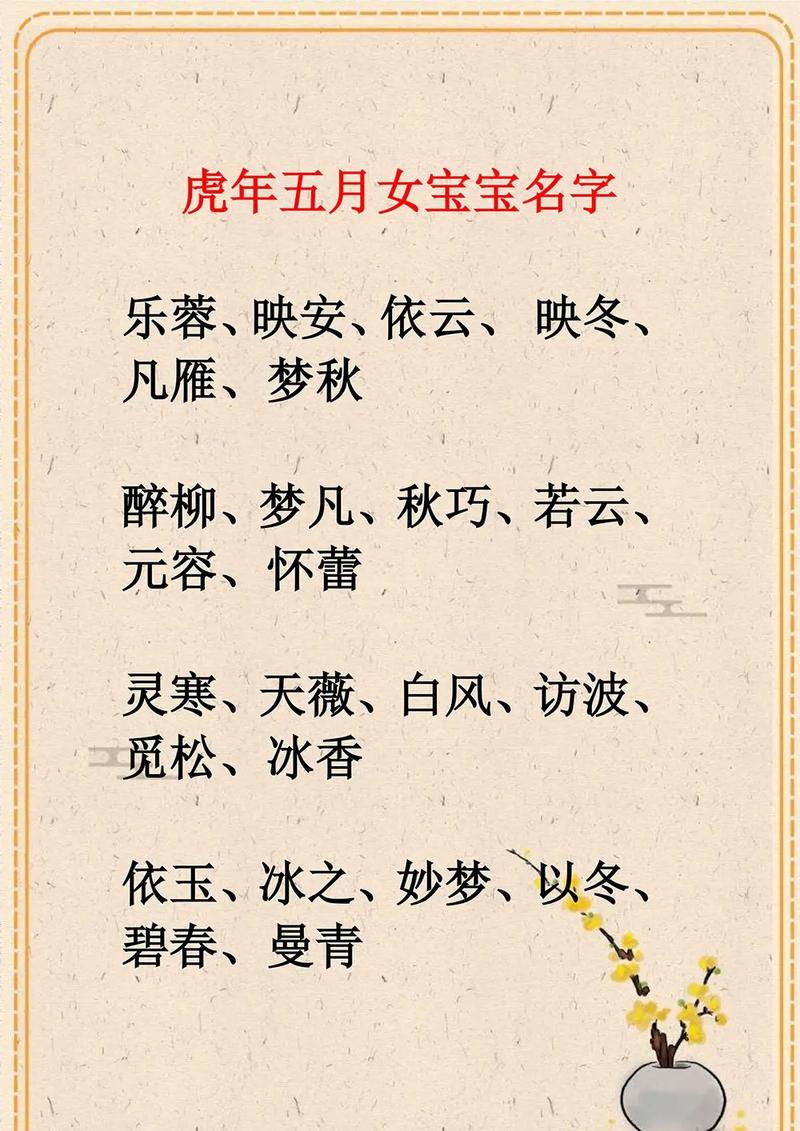 虎年五月女宝宝名字
乐蓉、映安、依云、 映冬、
凡雁、梦秋
醉柳、梦凡、秋巧、若云、
元容、怀蕾
灵寒、天薇、白风、访波、
觅松、冰香
依玉、冰之、妙梦、以冬、
碧春、曼青